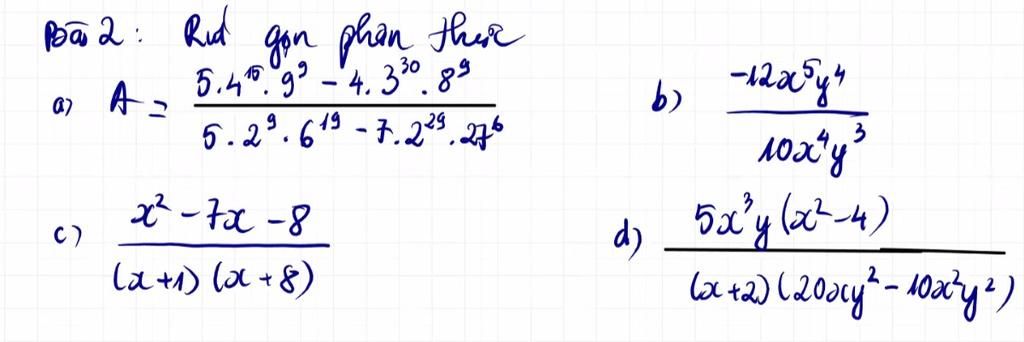 Bài 2: Rút gọn phân thức
a) A = \frac{5.4^{15}.9^9 - 4.3^{30}.8^9}{5.2^9.6^{19} - 7.2^{29}.27^6}
b) \frac{-12x^5y^4}{10x^4y^3}
c) \frac{x^2 - 7x - 8}{(x+1)(x+8)}
d) \frac{5x^3y(x^2-4)}{(x+2)(20xy^2 - 10x^2y^2)}